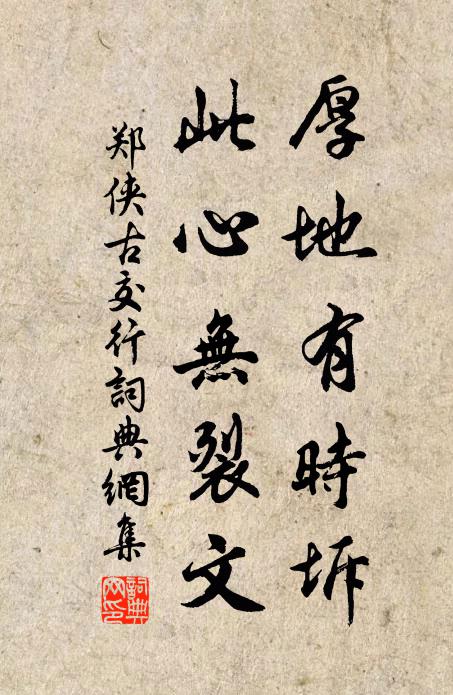 厚地有時坼
此心無裂文
郑侠古交行詞典網集
詞典网印